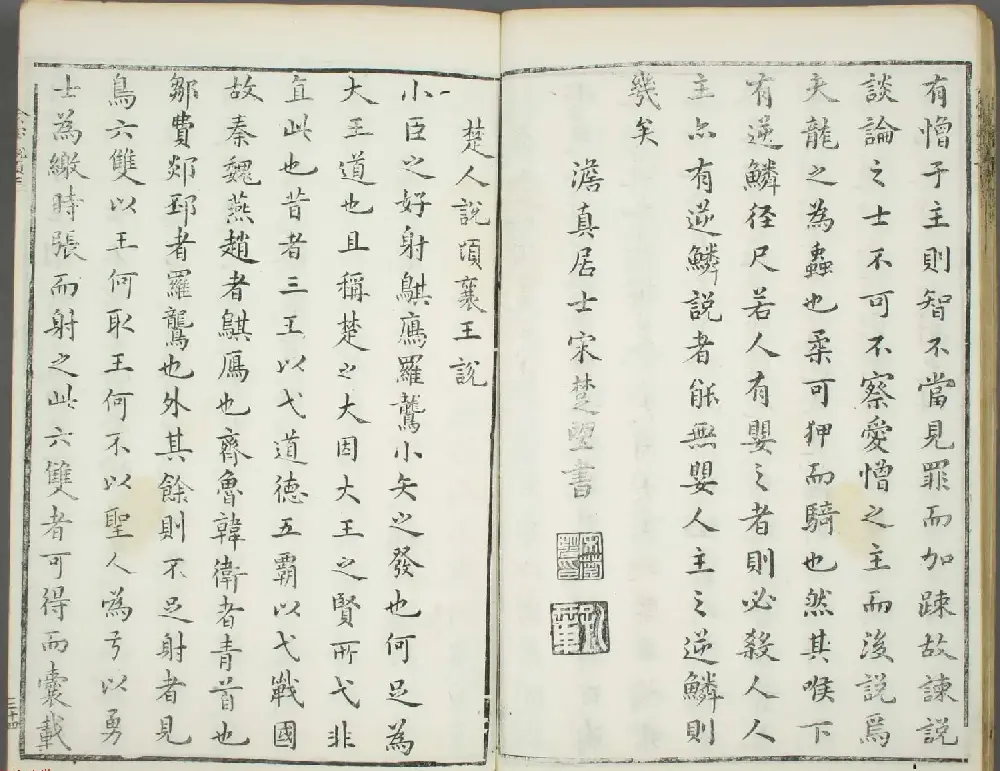 有憎于主則智不當見罪而加踈故諫説
談論之士不可不察愛憎之主而後説焉
夫龍之為蟲也柔可狎而騎也然其喉下
有逆鱗径尺若人有嬰之者則必殺人人
主亦有逆鱗説者能無嬰人主之逆鱗則
幾矣
澹真居士宋楚望書
楚人説頃襄王説
小臣之好射鶀鴈羅鸗小矢之發也何足為
大王道也且稱楚之大因大王之賢所弋非
直此也昔者三王以弋道德五霸以弋戰國
故秦魏燕趙者鶀鴈也齊魯韓衛者青首也
鄒費郯邳者羅鸗也外其餘則不足射者見
鳥六雙以王何取王何不以聖人為弓以勇
士為繳時張而射之此六雙者可得而囊載
三十四